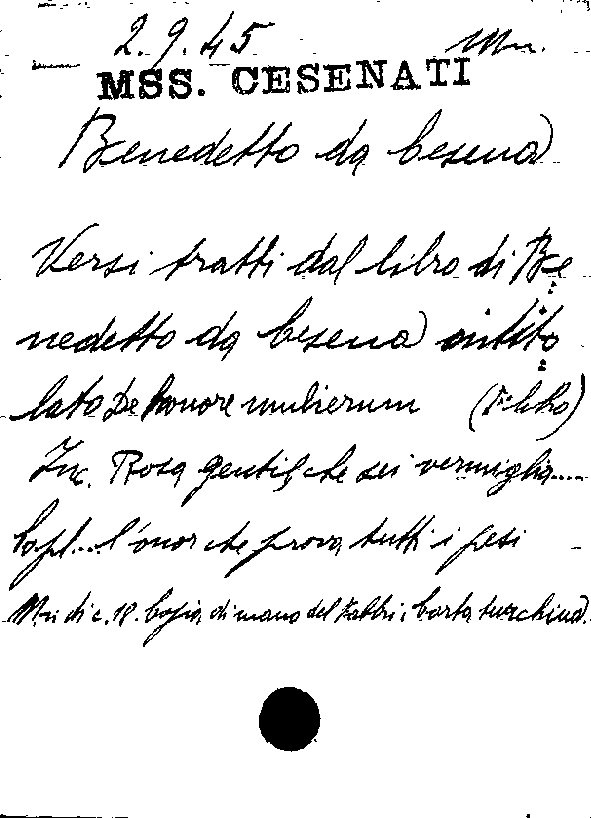 2.9.45 Mn.
MSS. CESENATI
Benedetto da Cesena
Versi tratti dal libro di Be
nedetto da Cesena intito
lato De honore mulierum (I° libro)
Inc. Rosa gentil, che sei vermiglia....
Expl... l'onor che prova tutti i pesi
Mn di c. 18. Copia di mano del Fabbri; Carta turchina.